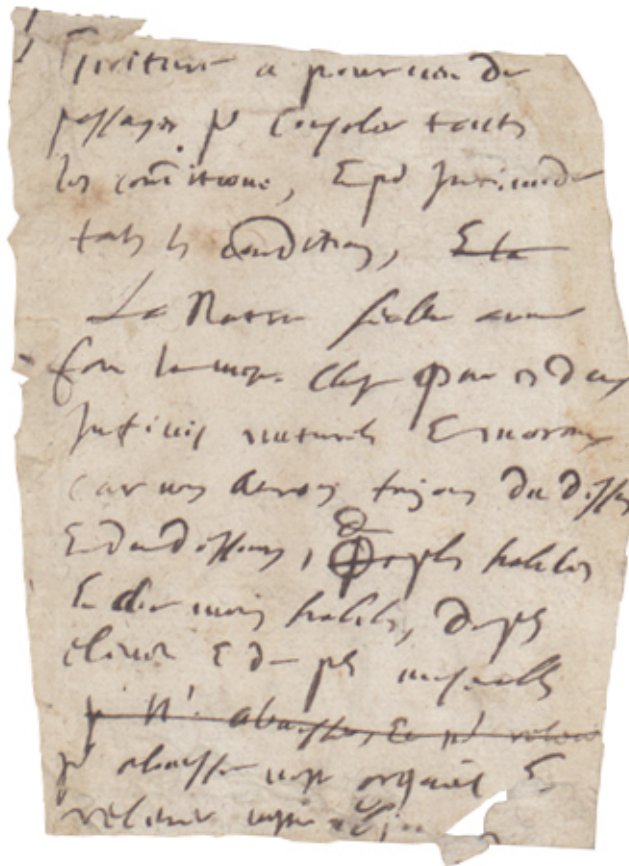 l'Ecriture a pourveu de
passages pr consoler toutes
les conditions, Et pr Intimider
toutes les conditions, Et la
La Nature semble avoir
fait la mesme chose par ses deux
Infinis naturels Et moraux
car nous aurons toujours du dessus
Et du dessous, de plus habiles
Et de moins habiles, de plus
elevez Et de plus miserables
pr N. abaisser, Et pr relever
pr abaisser nostre orgueil Et
relever nostre